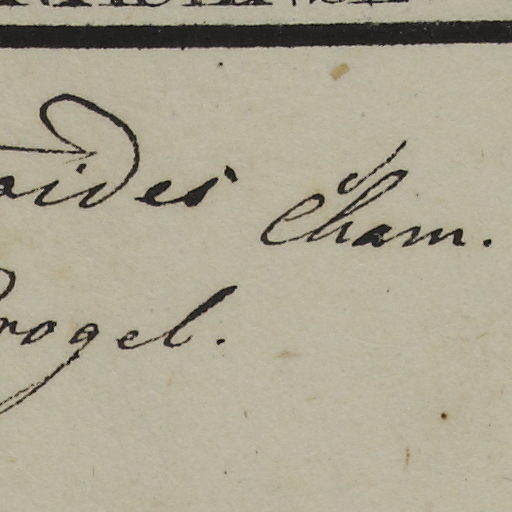 oides Cham.
rogel.